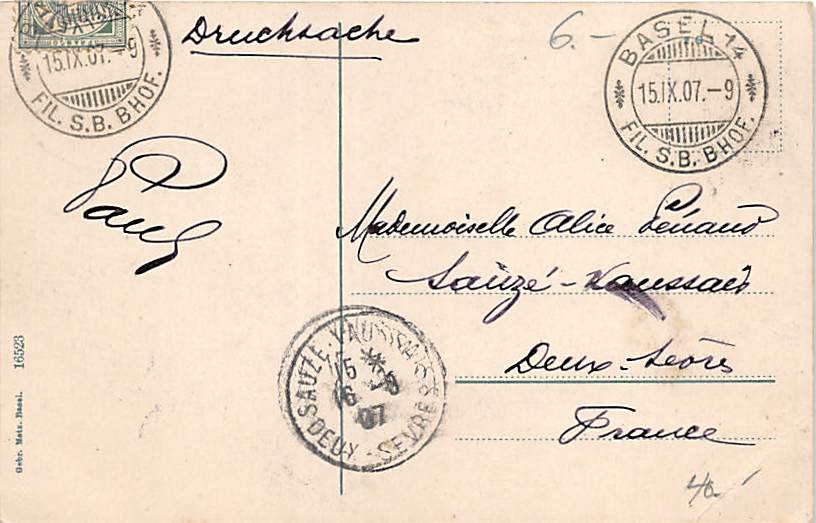 Drucksache
6.-
BASEL 14
15.IX.07.-9
FIL. S.B. BHOF.
15.IX.07.-9
FIL. S.B. BHOF.
Paul
Mademoiselle Alice Pénaud
Sauzé-Vaussais
Deux-Sèvres
France
SAUZE-VAUSSAIS
15
16 -9
07
DEUX-SEVRES
Gebr. Metz. Basel. 16523